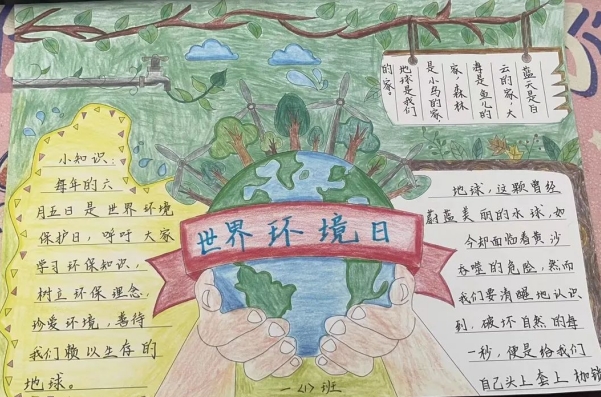 世界环境日
小知识：
每年的六
月五日是世界环境
保护日，呼吁大家
学习环保知识，
树立环保理念，
珍爱环境，善待
我们赖以生存的
地球。
蓝天是白
云的家，大
海是鱼儿的
家，森林
是小鸟的家
地球是我们
的家。
地球，这颗曾经
蔚蓝美丽的水球，如
今却面临着黄沙
吞噬的危险，然而
我们要清醒地认识
到，破坏自然的每
一秒，便是给我们
自己头上套上枷锁
一〈1〉班